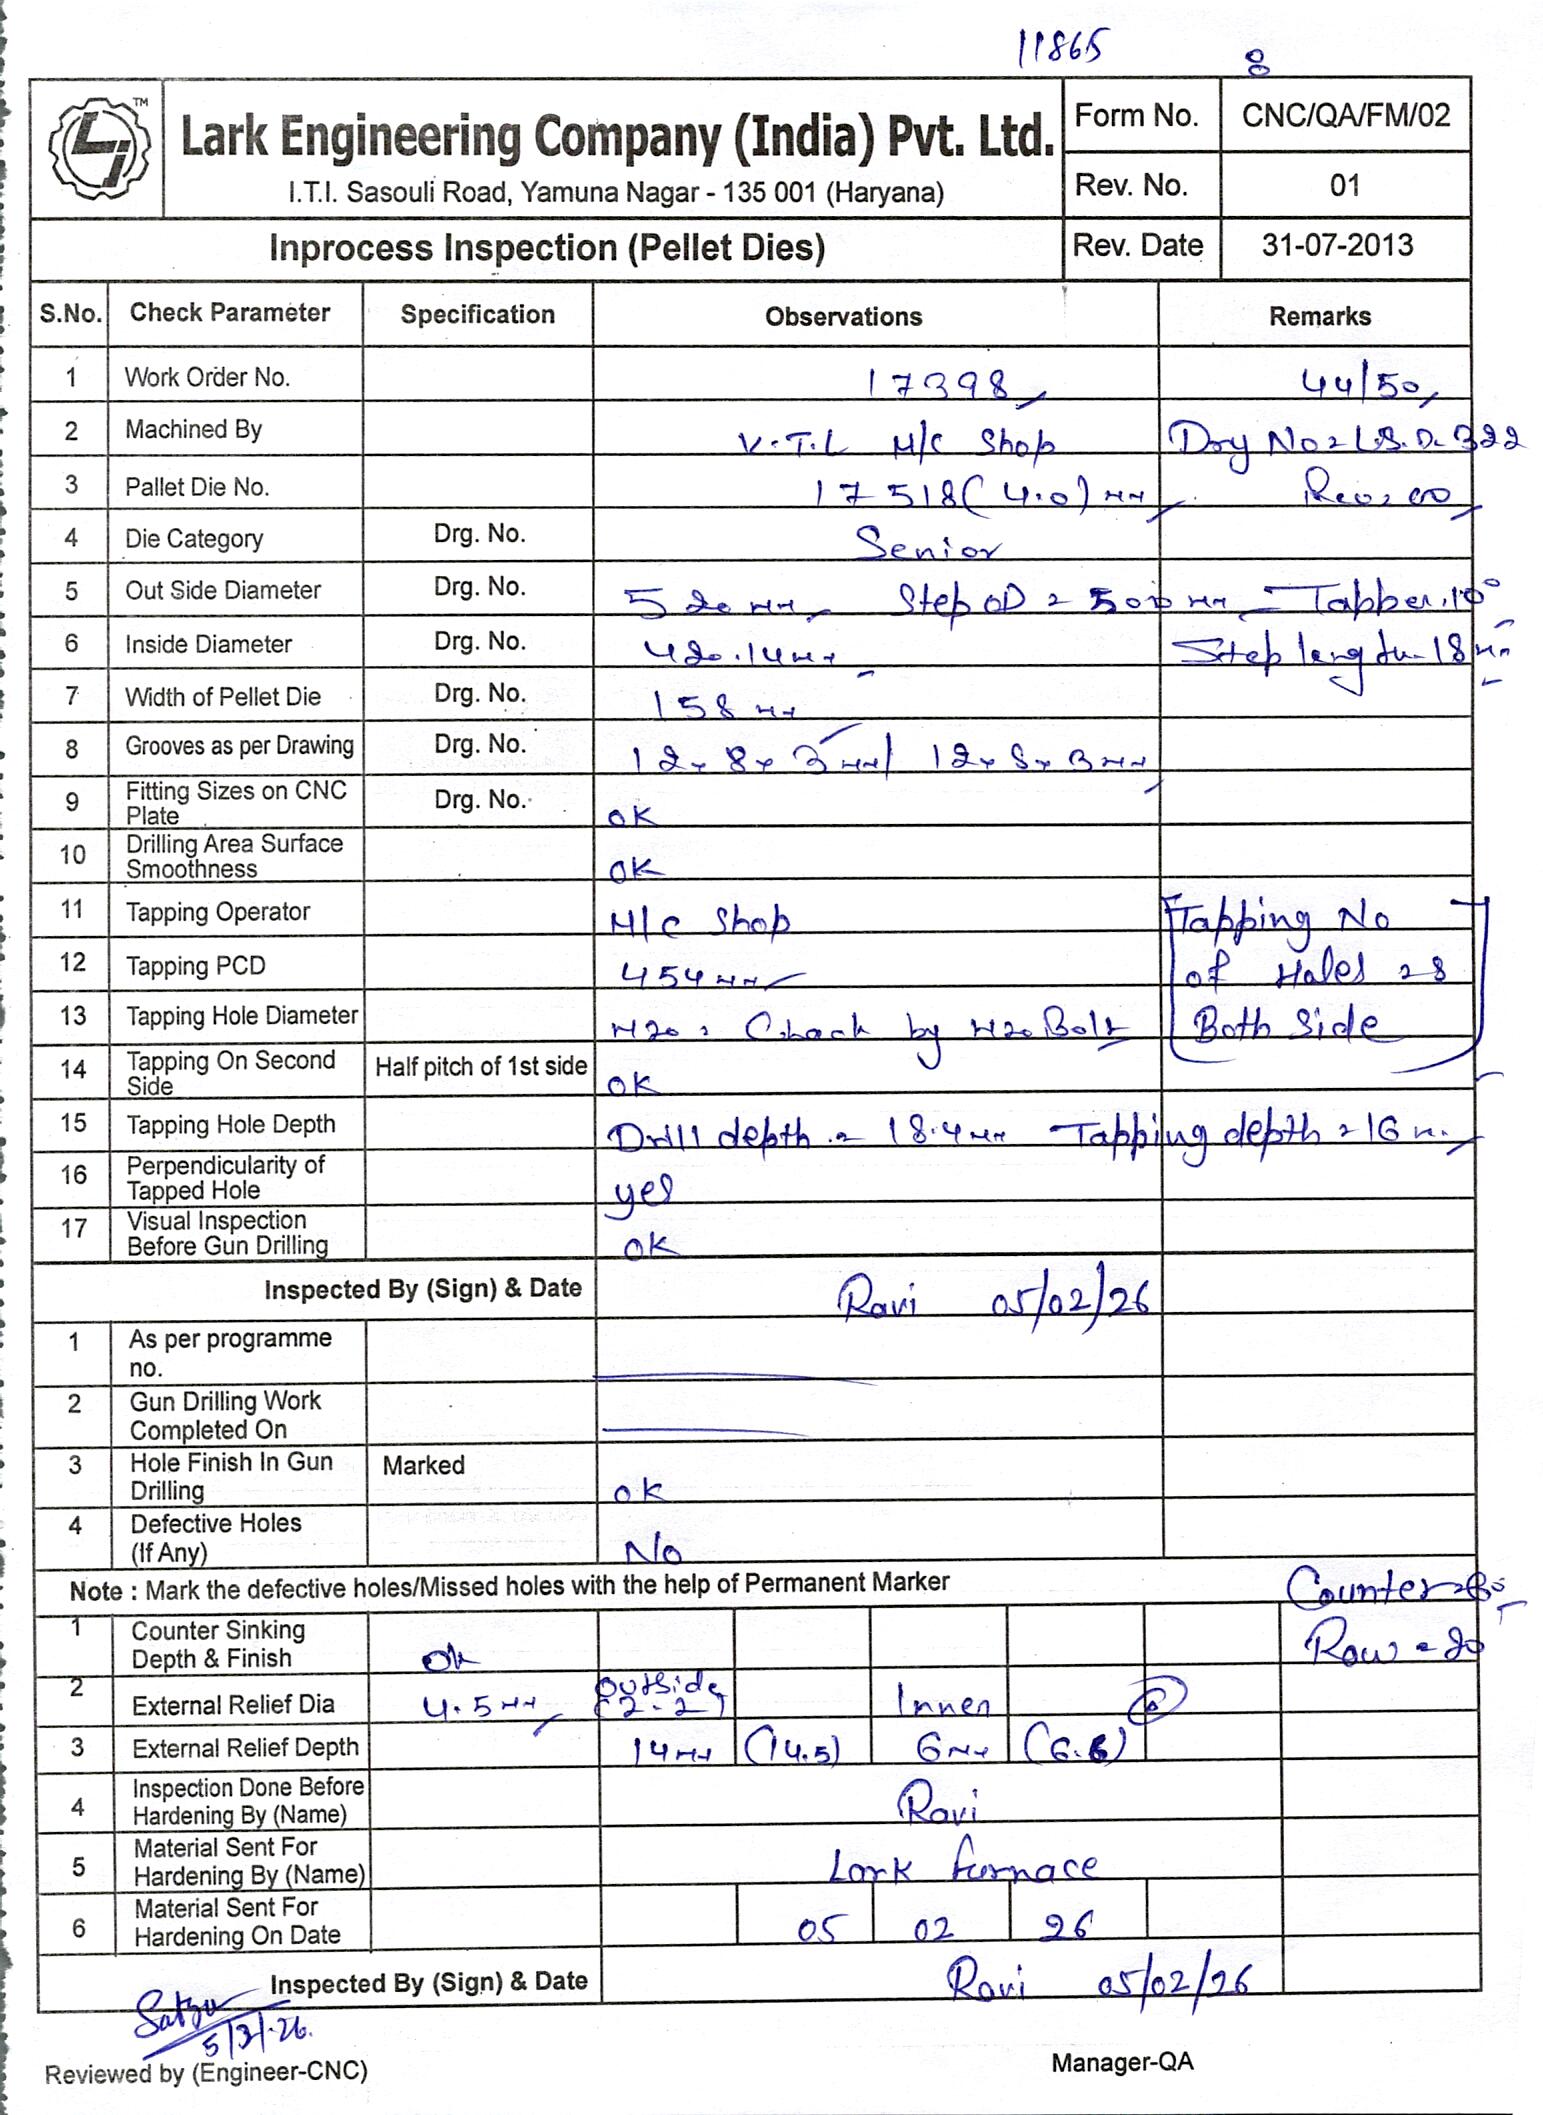 11865
8
TM
Lark Engineering Company (India) Pvt. Ltd.
I.T.I. Sasouli Road, Yamuna Nagar - 135 001 (Haryana)
Form No. CNC/QA/FM/02
Rev. No. 01
Inprocess Inspection (Pellet Dies) Rev. Date 31-07-2013
S.No. Check Parameter Specification Observations Remarks
1 Work Order No. 17398 44/50
2 Machined By V.T.L M/C Shop Drg No = L.S.D. 322
3 Pallet Die No. 17518 (4.0) mm Rev = 00
4 Die Category Drg. No. Senior
5 Out Side Diameter Drg. No. 520 mm Step OD = 500 mm = Tapper 10°
6 Inside Diameter Drg. No. 420.14 mm Step length - 18 mm
7 Width of Pellet Die Drg. No. 158 mm
8 Grooves as per Drawing Drg. No. 12 x 8 x 3 mm / 12 x 8 x 3 mm
9 Fitting Sizes on CNC Plate Drg. No. OK
10 Drilling Area Surface Smoothness OK
11 Tapping Operator M/C Shop Tapping No
12 Tapping PCD 454 mm of Holes = 8
13 Tapping Hole Diameter M20 = Chack by M20 Bolt Both Side
14 Tapping On Second Side Half pitch of 1st side OK
15 Tapping Hole Depth Drill depth = 18.4 mm Tapping depth = 16 m
16 Perpendicularity of Tapped Hole yes
17 Visual Inspection Before Gun Drilling OK
Inspected By (Sign) & Date Ravi 05/02/26
1 As per programme no.
2 Gun Drilling Work Completed On
3 Hole Finish In Gun Drilling Marked ok
4 Defective Holes (If Any) No
Note : Mark the defective holes/Missed holes with the help of Permanent Marker Counter
1 Counter Sinking Depth & Finish Ok Row = 20
2 External Relief Dia 4.5 mm Outside (2-2) Inner
3 External Relief Depth 14 mm (14.5) 6 mm (6.6)
4 Inspection Done Before Hardening By (Name) Ravi
5 Material Sent For Hardening By (Name) Lark furnace
6 Material Sent For Hardening On Date 05 02 26
Inspected By (Sign) & Date Ravi 05/02/26
Reviewed by (Engineer-CNC) Manager-QA